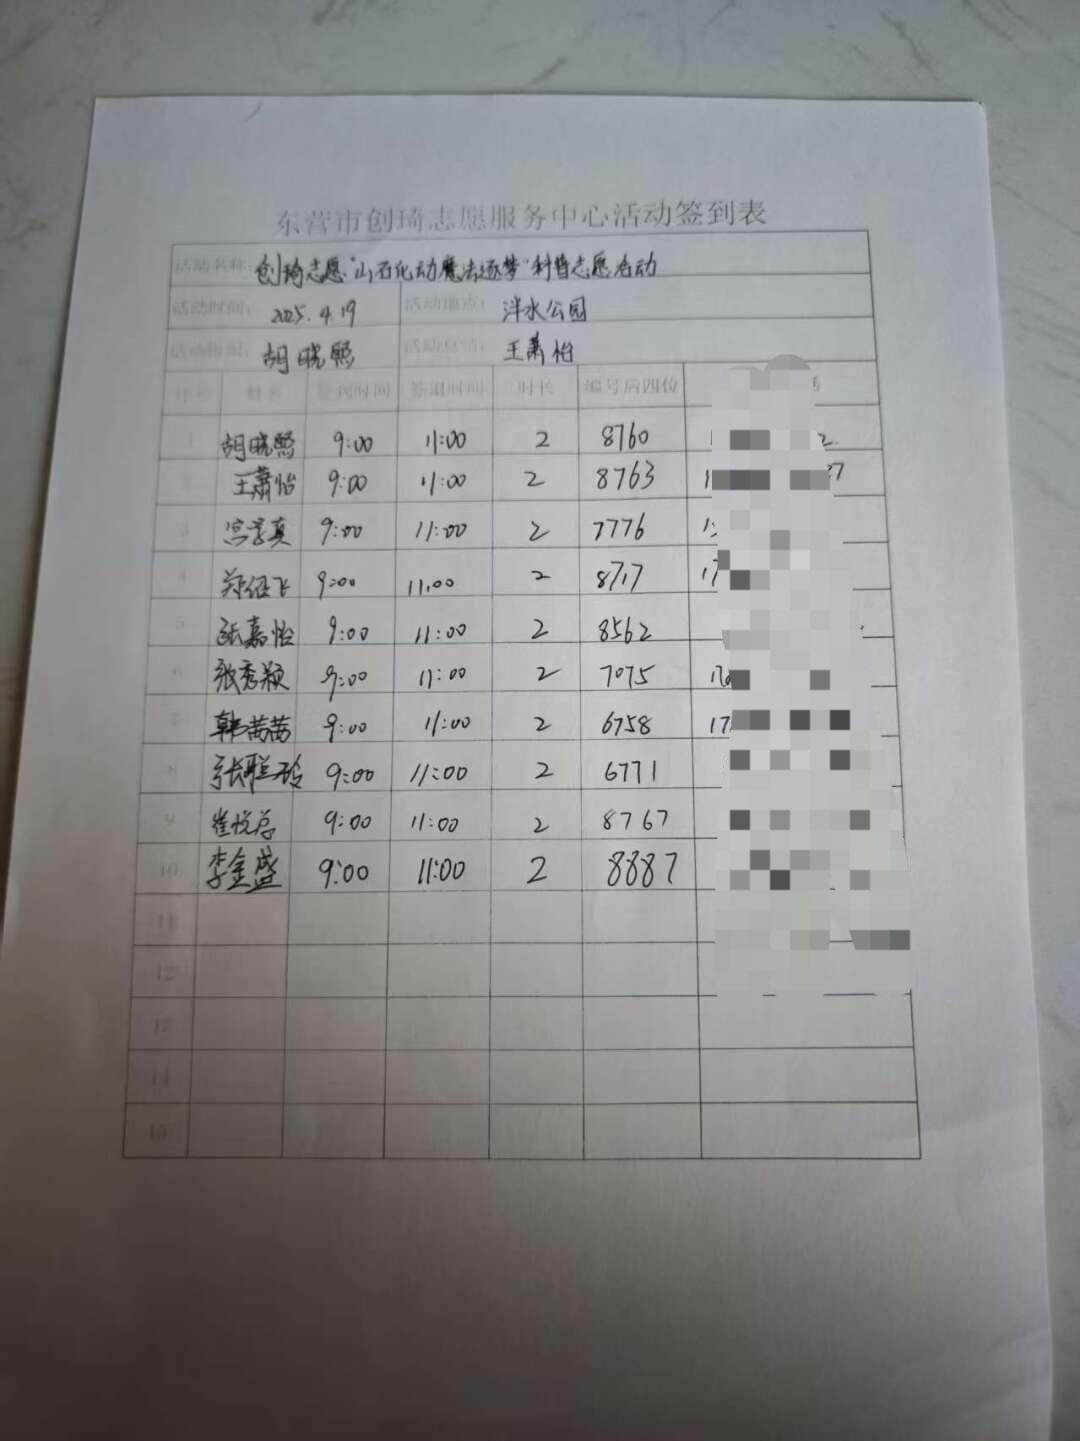 东营市创琦志愿服务中心活动签到表
活动名称: 创琦志愿"山石化动魔法逐梦"科普志愿活动
活动时间: 2025.4.19 活动地点: 泮水公园
胡晓熙 王萧怡
序号 姓名 签到时间 签退时间 时长 编号后四位
1 胡晓熙 9:00 11:00 2 8760
2 王萧怡 9:00 11:00 2 8763
3 9:00 11:00 2 7776
4 9:00 11:00 2 8717
5 张嘉怡 9:00 11:00 2 8562
6 张秀颖 9:00 11:00 2 7075
7 韩茜茜 9:00 11:00 2 6758
8 9:00 11:00 2 6771
9 9:00 11:00 2 8767
10 李金盛 9:00 11:00 2 8887
11
12
13
14
15